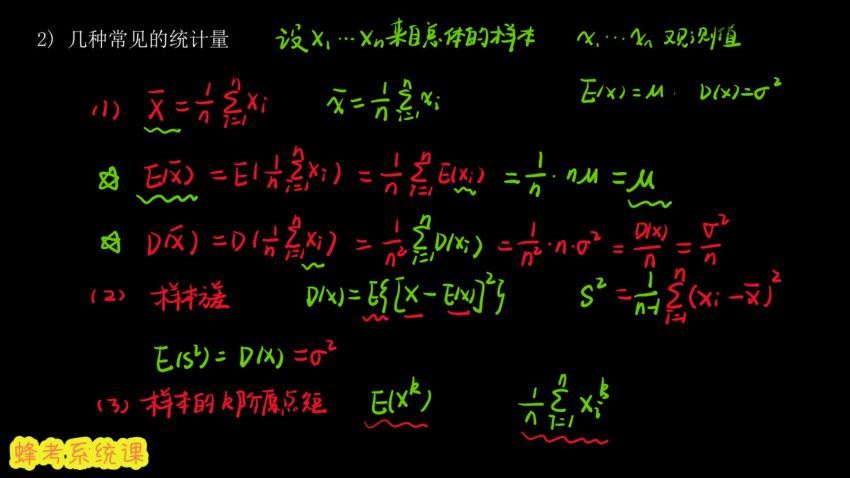 2) 几种常见的统计量 设 X₁ … Xₙ 来自总体的样本 x₁ … xₙ 观测值
(1) X̄ = 1/n ∑ᵢ₌₁ⁿ Xᵢ x̄ = 1/n ∑ᵢ₌₁ⁿ xᵢ E(X) = μ. D(X) = σ²
☆ E(X̄) = E(1/n ∑ᵢ₌₁ⁿ Xᵢ) = 1/n ∑ᵢ₌₁ⁿ E(Xᵢ) = 1/n · nμ = μ
☆ D(X̄) = D(1/n ∑ᵢ₌₁ⁿ Xᵢ) = 1/n² ∑ᵢ₌₁ⁿ D(Xᵢ) = 1/n² · n · σ² = D(X)/n = σ²/n
(2) 样本方差 D(X) = E{[X − E(X)]²} S² = 1/(n-1) ∑ᵢ₌₁ⁿ (Xᵢ − X̄)²
E(S²) = D(X) = σ²
(3) 样本的k阶原点矩 E(Xᵏ) 1/n ∑ᵢ₌₁ⁿ Xᵢᵏ
蜂考系统课